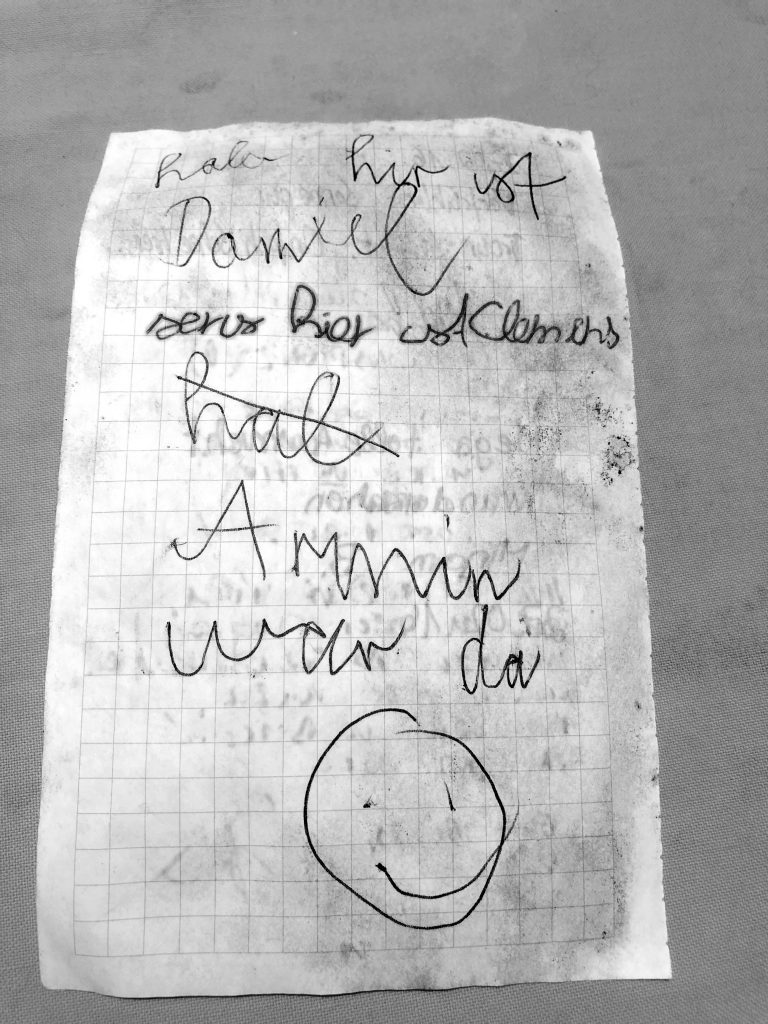 halo hir ist
Daniel
serus hier ist Clemens
hal
Armin
war da